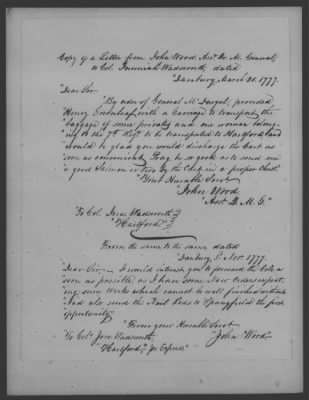 Copy of a Letter from John Wood, Asst Qr M. General,
to Col. Jeremiah Wadsworth, dated
"Danbury March 20. 1777.
"Dear Sir.
"By order of General McDougal, provided
Henry with a Carriage to transport the
baggage of some privates and one woman belong-
ing to the 7th Regt to be transported to Hartford and
would be glad you would discharge the Cart as
soon as convenient. Pray, be so good as to send me
a good Salmon or two by the Cart, in a proper
"Your Humble Servt
"John Wood,
"Asst D. M. G."
To Col. Jere. Wadsworth
"Hartford."
From the same, to the same, dated
"Danbury 8. Novr 1777.
"Dear Sir, I would interest you to forward the Cole as
soon as possible, as I have some New orders respect-
ing some Works which cannot be well finished without
And also send the Nail Rods to Springfield the first
opportunity.
"From your Humble Servt
To Colo Jere Wadsworth, "John Wood"
"Hartford" Pr Express"